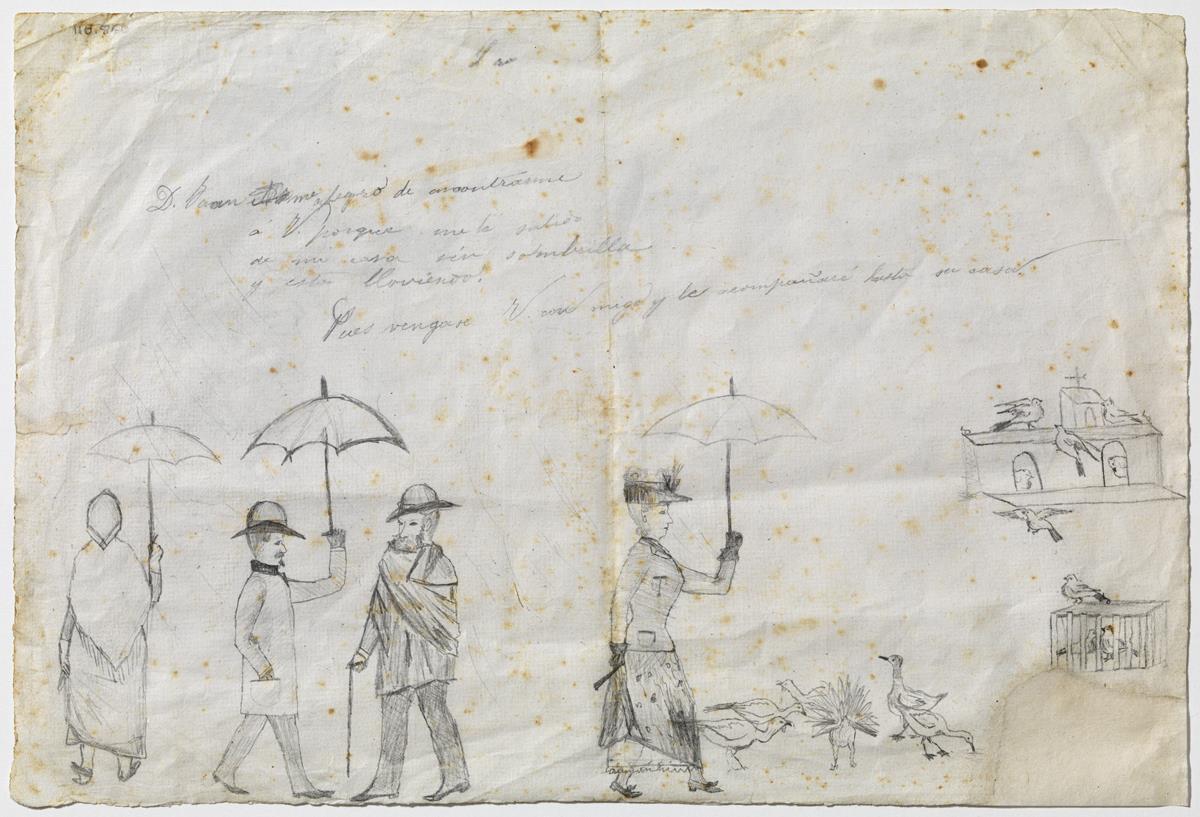 D. Juan me alegro de encontrarme
á V. porque me he salido
de mi casa sin sombrilla
y está lloviendo.
Pues vengase V. con migo y le acompañaré hasta su casa.